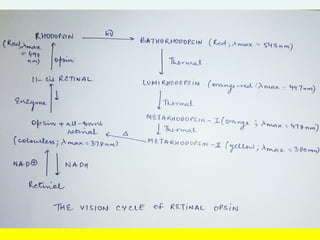 RHODOPSIN hν BATHORHODOPSIN (Red; λmax = 543nm)
(Red, λmax = 498 nm)
opsin
Thermal
11-cis RETINAL LUMIRHODOPSIN (orange-red: λmax = 497nm)
Enzyme
Thermal
METARHODOPSIN-I (orange; λmax = 478nm)
opsin + all-trans retinal
Thermal
(colourless; λmax = 378nm) Δ METARHODOPSIN-II (yellow; λmax = 380nm)
NAD⊕ NADH
Retinal
THE VISION CYCLE OF RETINAL OPSIN